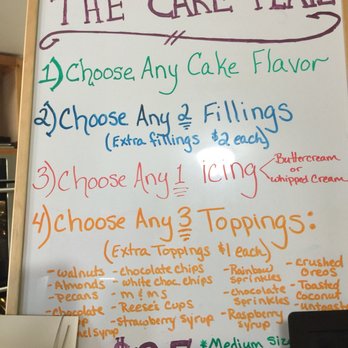 THE CAKE
1) Choose Any Cake Flavor
2) Choose Any 2 Fillings
(Extra fillings $2 each)
3) Choose Any 1 icing
Buttercream
or
whipped cream
4) Choose Any 3 Toppings:
(Extra Toppings $1 each)
- walnuts
- Almonds
- pecans
- chocolate
- chocolate chips
- white choc. chips
- m & m's
- Reese's Cups
- strawberry syrup
- Rainbow
sprinkles
- Chocolate
Sprinkles
- Raspberry
syrup
- crushed
oreos
- Toasted
Coconut
*Medium